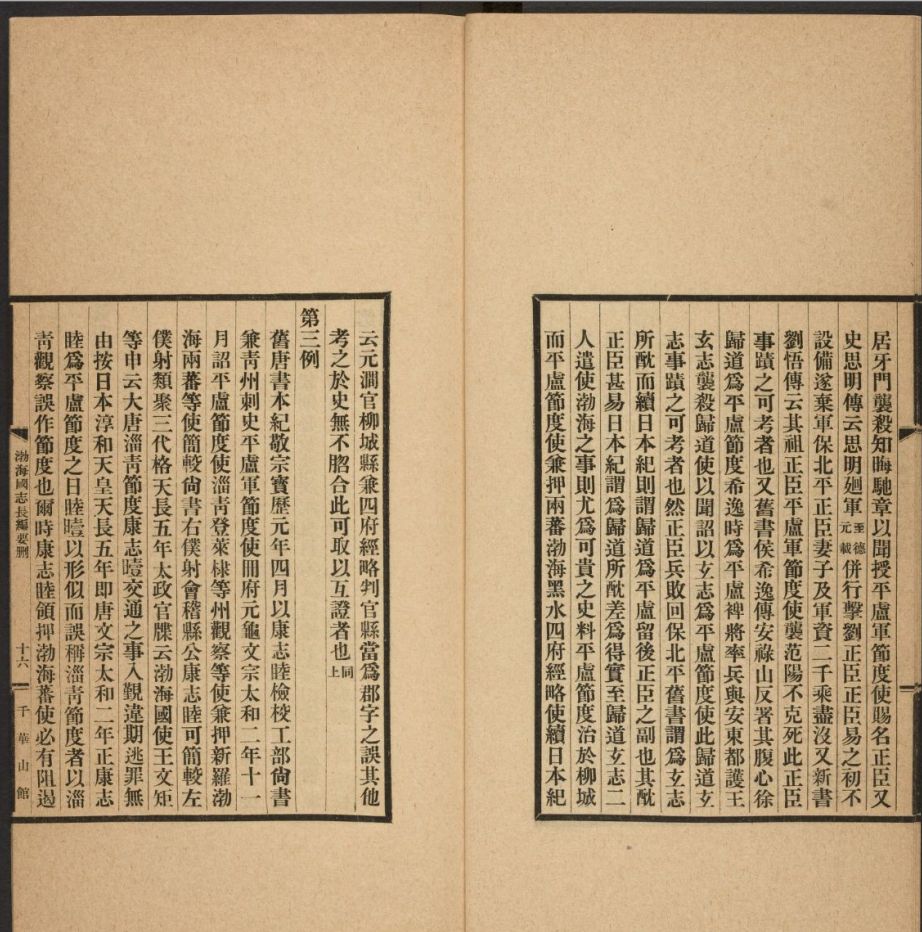 居牙門襲殺知晦馳章以聞授平盧軍節度使賜名正臣又
史思明傳云思明廻軍至德元載併行擊劉正臣正臣易之初不
設備遂棄軍保北平正臣妻子及軍資二千乘盡沒又新書
劉悟傳云其祖正臣平盧軍節度使襲范陽不克死此正臣
事蹟之可考者也又舊書侯希逸傳安祿山反署其腹心徐
歸道爲平盧節度希逸時爲平盧裨將率兵與安東都護王
玄志襲殺歸道使以聞詔以玄志爲平盧節度使此歸道玄
志事蹟之可考者也然正臣兵敗回保北平舊書謂爲玄志
所酖而續日本紀則謂歸道爲平盧留後正臣之副也其酖
正臣甚易日本紀謂爲歸道所酖差爲得實至歸道玄志二
人遣使渤海之事則尤爲可貴之史料平盧節度治於柳城
而平盧節度使兼押兩蕃渤海黑水四府經略使續日本紀
云元澗官柳城縣兼四府經略判官縣當爲郡字之誤其他
考之於史無不脗合此可取以互證者也同上
第三例
舊唐書本紀敬宗寶歷元年四月以康志睦檢校工部尙書
兼靑州刺史平盧軍節度使冊府元龜文宗太和二年十一
月詔平盧節度使淄靑登萊棣等州觀察等使兼押新羅渤
海兩蕃等使簡較尙書右僕射會稽縣公康志睦可簡較左
僕射類聚三代格天長五年太政官牒云渤海國使王文矩
等申云大唐淄靑節度康志曀交通之事入覲違期逃罪無
由按日本淳和天皇天長五年即唐文宗太和二年正康志
睦爲平盧節度之日睦曀以形似而誤稱淄靑節度者以淄
靑觀察誤作節度也爾時康志睦領押渤海蕃使必有阻遏
渤海國志長編要刪
十六
千華山館